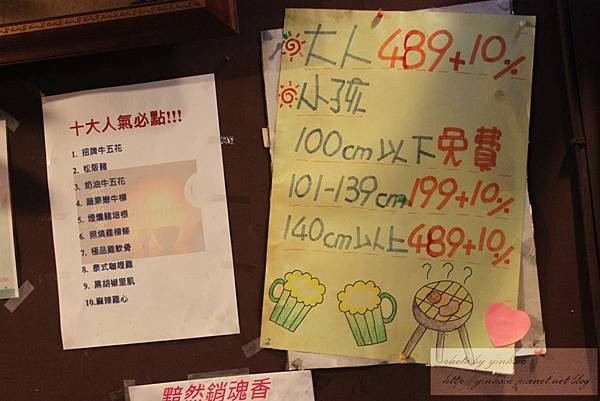 十大人氣必點!!!
1. 招牌牛五花
2. 松阪豬
3. 奶油牛五花
4. 蔬果嫩牛柳
5. 煙燻豬培根
6. 照燒雞柳條
7. 極品雞軟骨
8. 泰式咖哩雞
9. 黑胡椒里肌
10.麻辣雞心
大人 489+10%
小孩
100cm以下免費
101-139cm 199+10%
140cm以上 489+10%
? ? ?
黯然銷魂香
photo by yinhsia
http://yinhsia.pixnet.net/blog